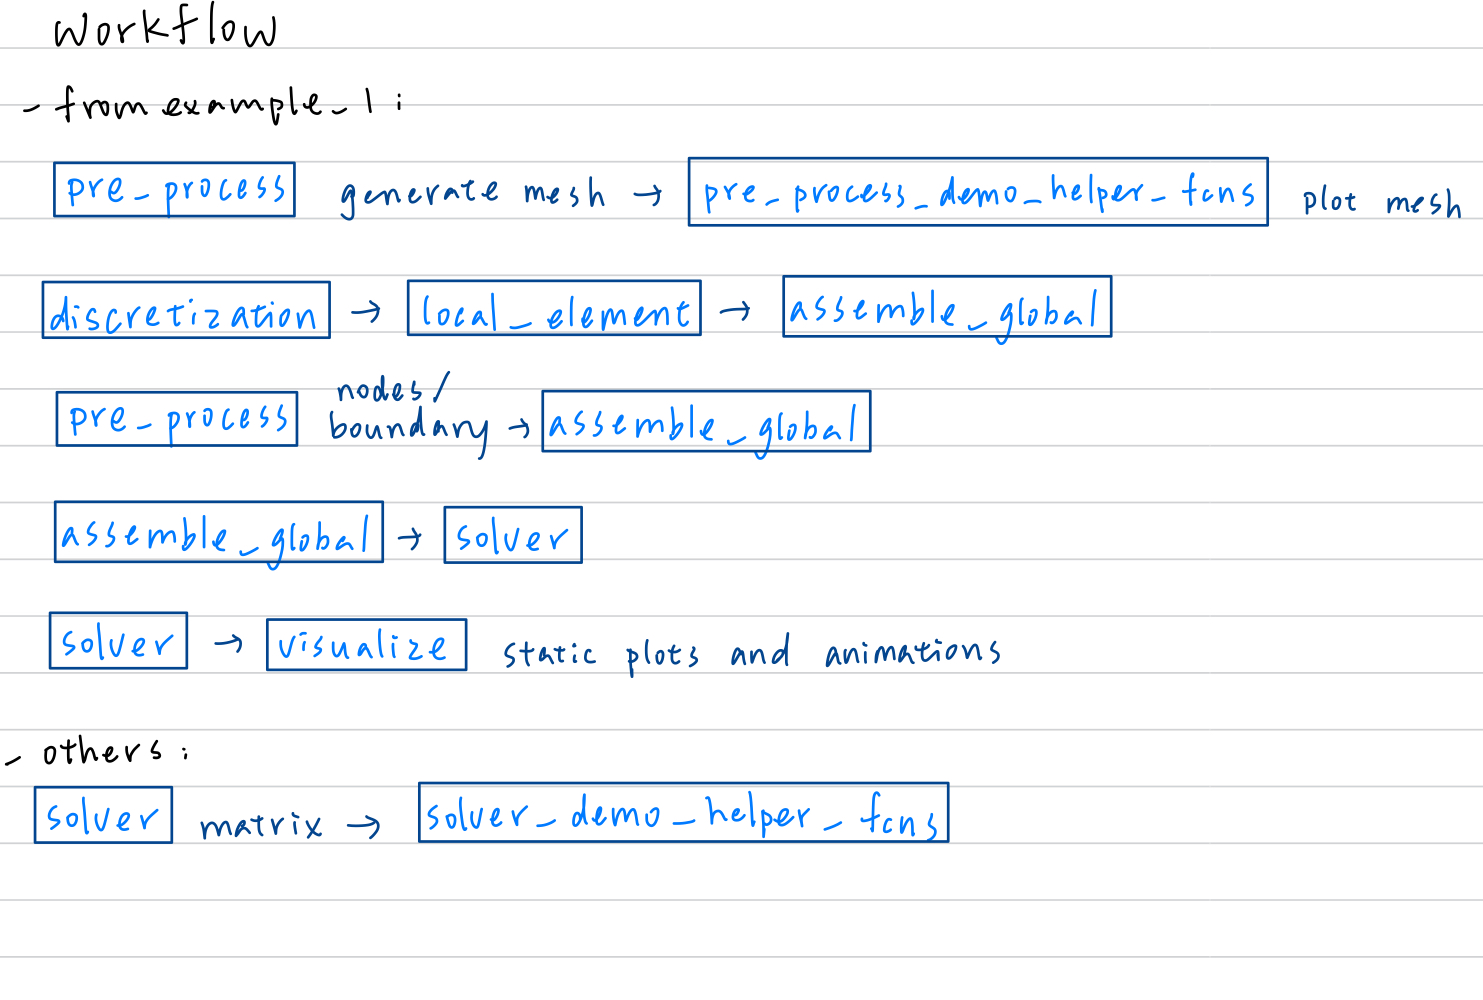 Workflow
- from example_1:
pre_process generate mesh → pre_process_demo_helper_fcns plot mesh
discretization → local_element → assemble_global
pre_process nodes/
boundary → assemble_global
assemble_global → solver
solver → visualize static plots and animations
- others:
solver matrix → solver_demo_helper_fcns